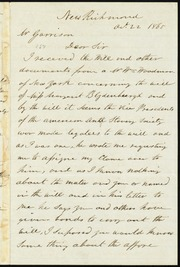 New Richmond
Oct 22 1865
W Garrison
Dear Sir
I received the Will and other
documents from a Mr
of New York concerning the will
of
by the will it seems the Vice Presidents
of the american Anti Slavery Society
were made legatees to the will and
as I was one he wrote me requesting
me to assigne my Claim over to
him, and as I knew nothing
about the matter and you are named
in the will and in his letter to
me he says you and others have
given bonds to carry out the
will, I supposed you would know
Some thing about the affare